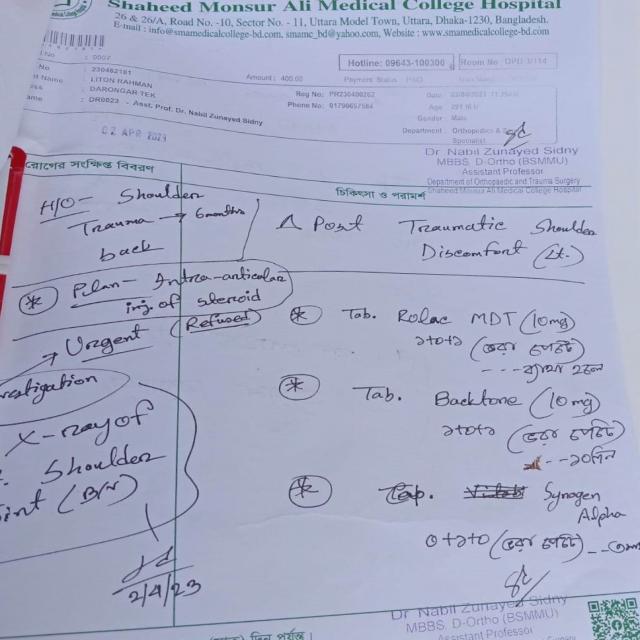 Shaheed Monsur Ali Medical College Hospital
26 & 26/A, Road No. -10, Sector No. - 11, Uttara Model Town, Uttara, Dhaka-1230, Bangladesh.
E-mail : info@smamedicalcollege-bd.com, smamc_bd@yahoo.com, Website : www.smamedicalcollege-bd.com
Hotline: 09643-100300 Room No OPD
: 0007
No : 230462181
Name : LITON RAHMAN
: DARONGAR TEK
: DR0023 - Asst. Prof. Dr. Nabil Zunayed Sidny
Amount : 400.00
Payment Status : PAID
Reg No: PR230400262
Phone No: 01790657584
Date
Age
Gender : Male
Department : Orthopedics &
Specialist
02 APR 2023
Dr Nabil Zunayed Sidny
MBBS, D-Ortho (BSMMU)
Assistant Professor
Department of Orthopaedic and Trauma Surgery
Shaheed Monsur Ali Medical College Hospital
রোগের সংক্ষিপ্ত বিবরণ
চিকিৎসা ও পরামর্শ
H/O- Shoulder
Trauma → 6 months
back
Plan- Intra-articular
inj. of steroid
(Refused)
→ Urgent
X-ray of
Shoulder
(B/V)
2/4/23
Δ Post Traumatic Shoulder
Discomfort (Lt.)
Tab. Rolac MDT (10mg)
১+০+১ (ভরা পেটে)
--- ব্যাথা হলে
Tab. Backtone (10mg)
১+০+১ (ভরা পেটে)
--১০দিন
Tap. Synogen
Alpha
০+১+০ (ভরা পেটে)
Dr Nabil Zunayed Sidny
MBBS, D-Ortho (BSMMU)
Assistant Professor
দিন পর্যন্ত।